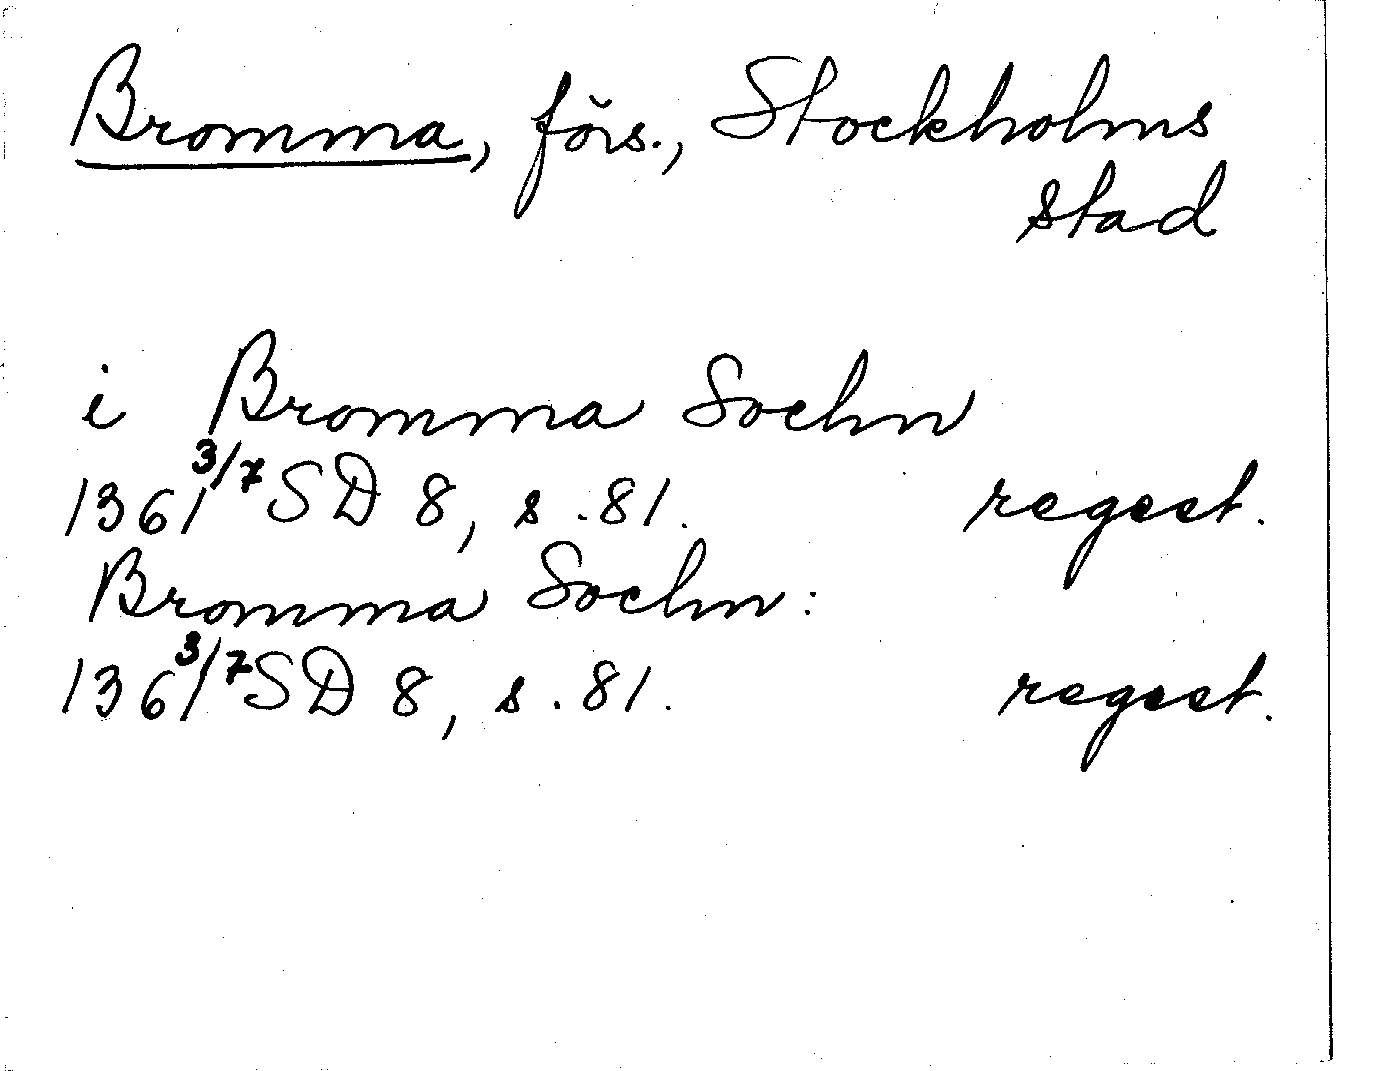 Bromma, förs., Stockholms
stad
i Bromma Sochn
1361 3/7 SD 8, s. 81. regest.
Bromma Sochn:
1361 3/7 SD 8, s. 81. regest.